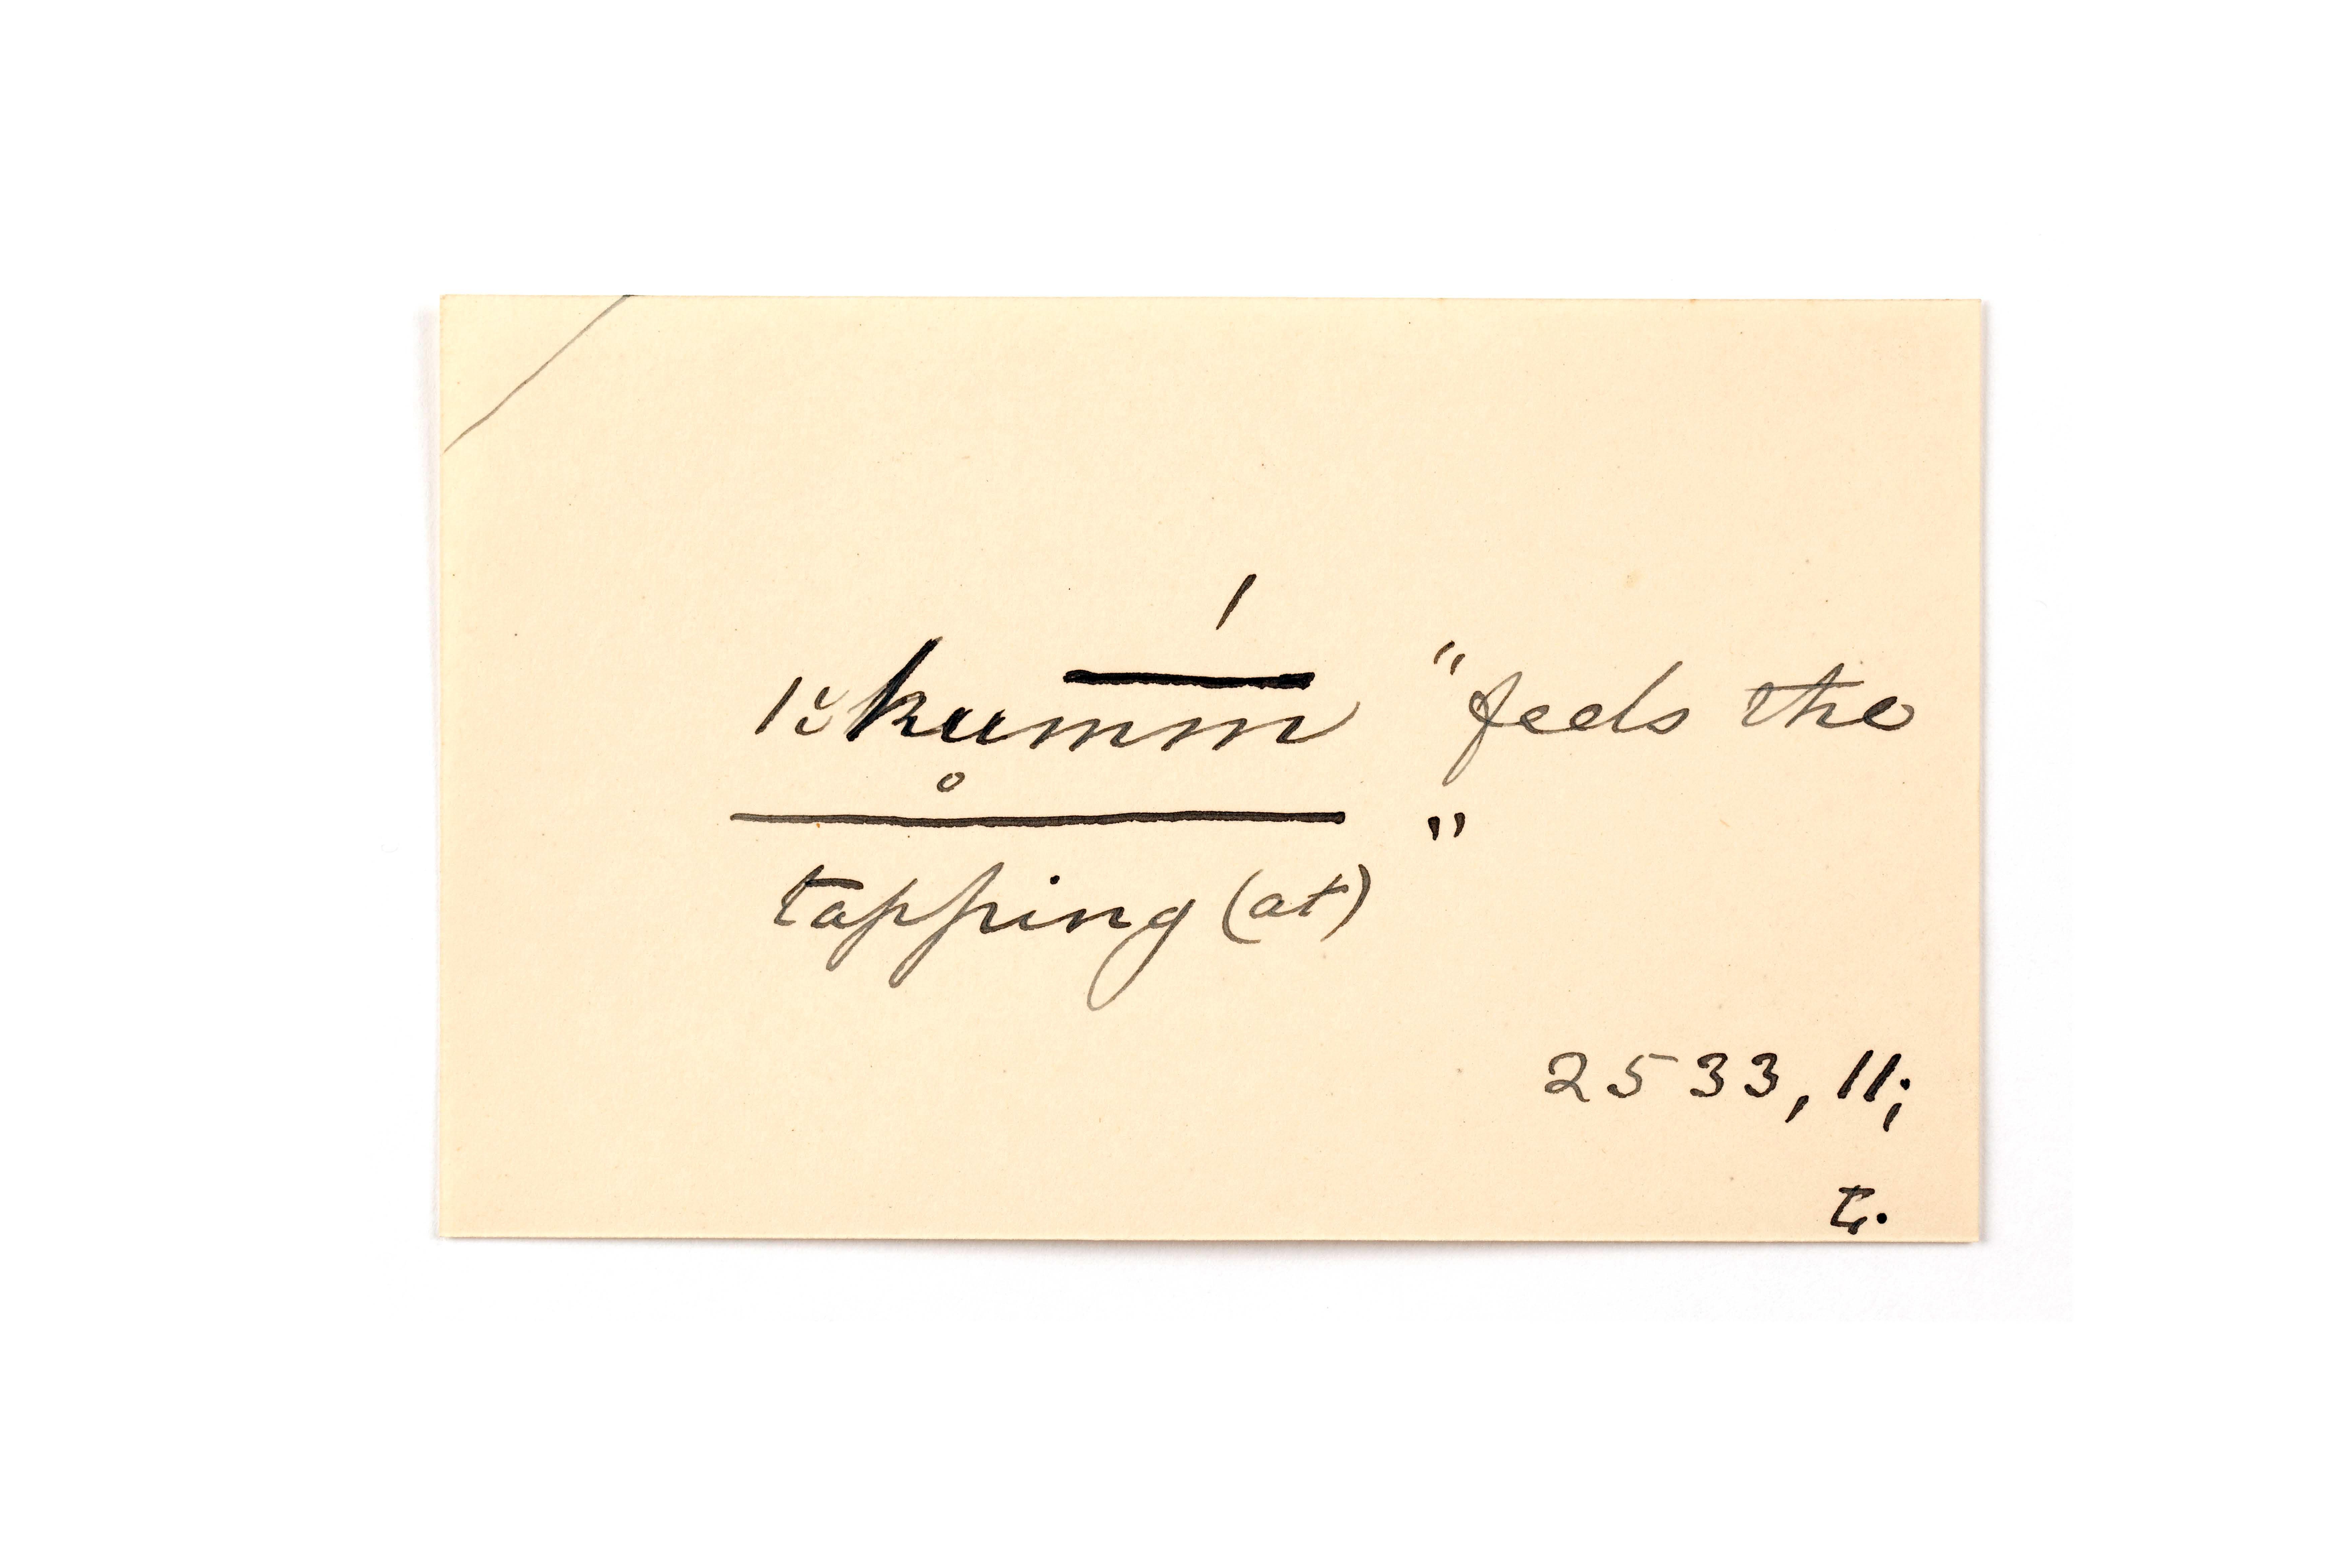 ǀĭkumm̄́ "feels the
tapping (at)"
2533, 11;
t.